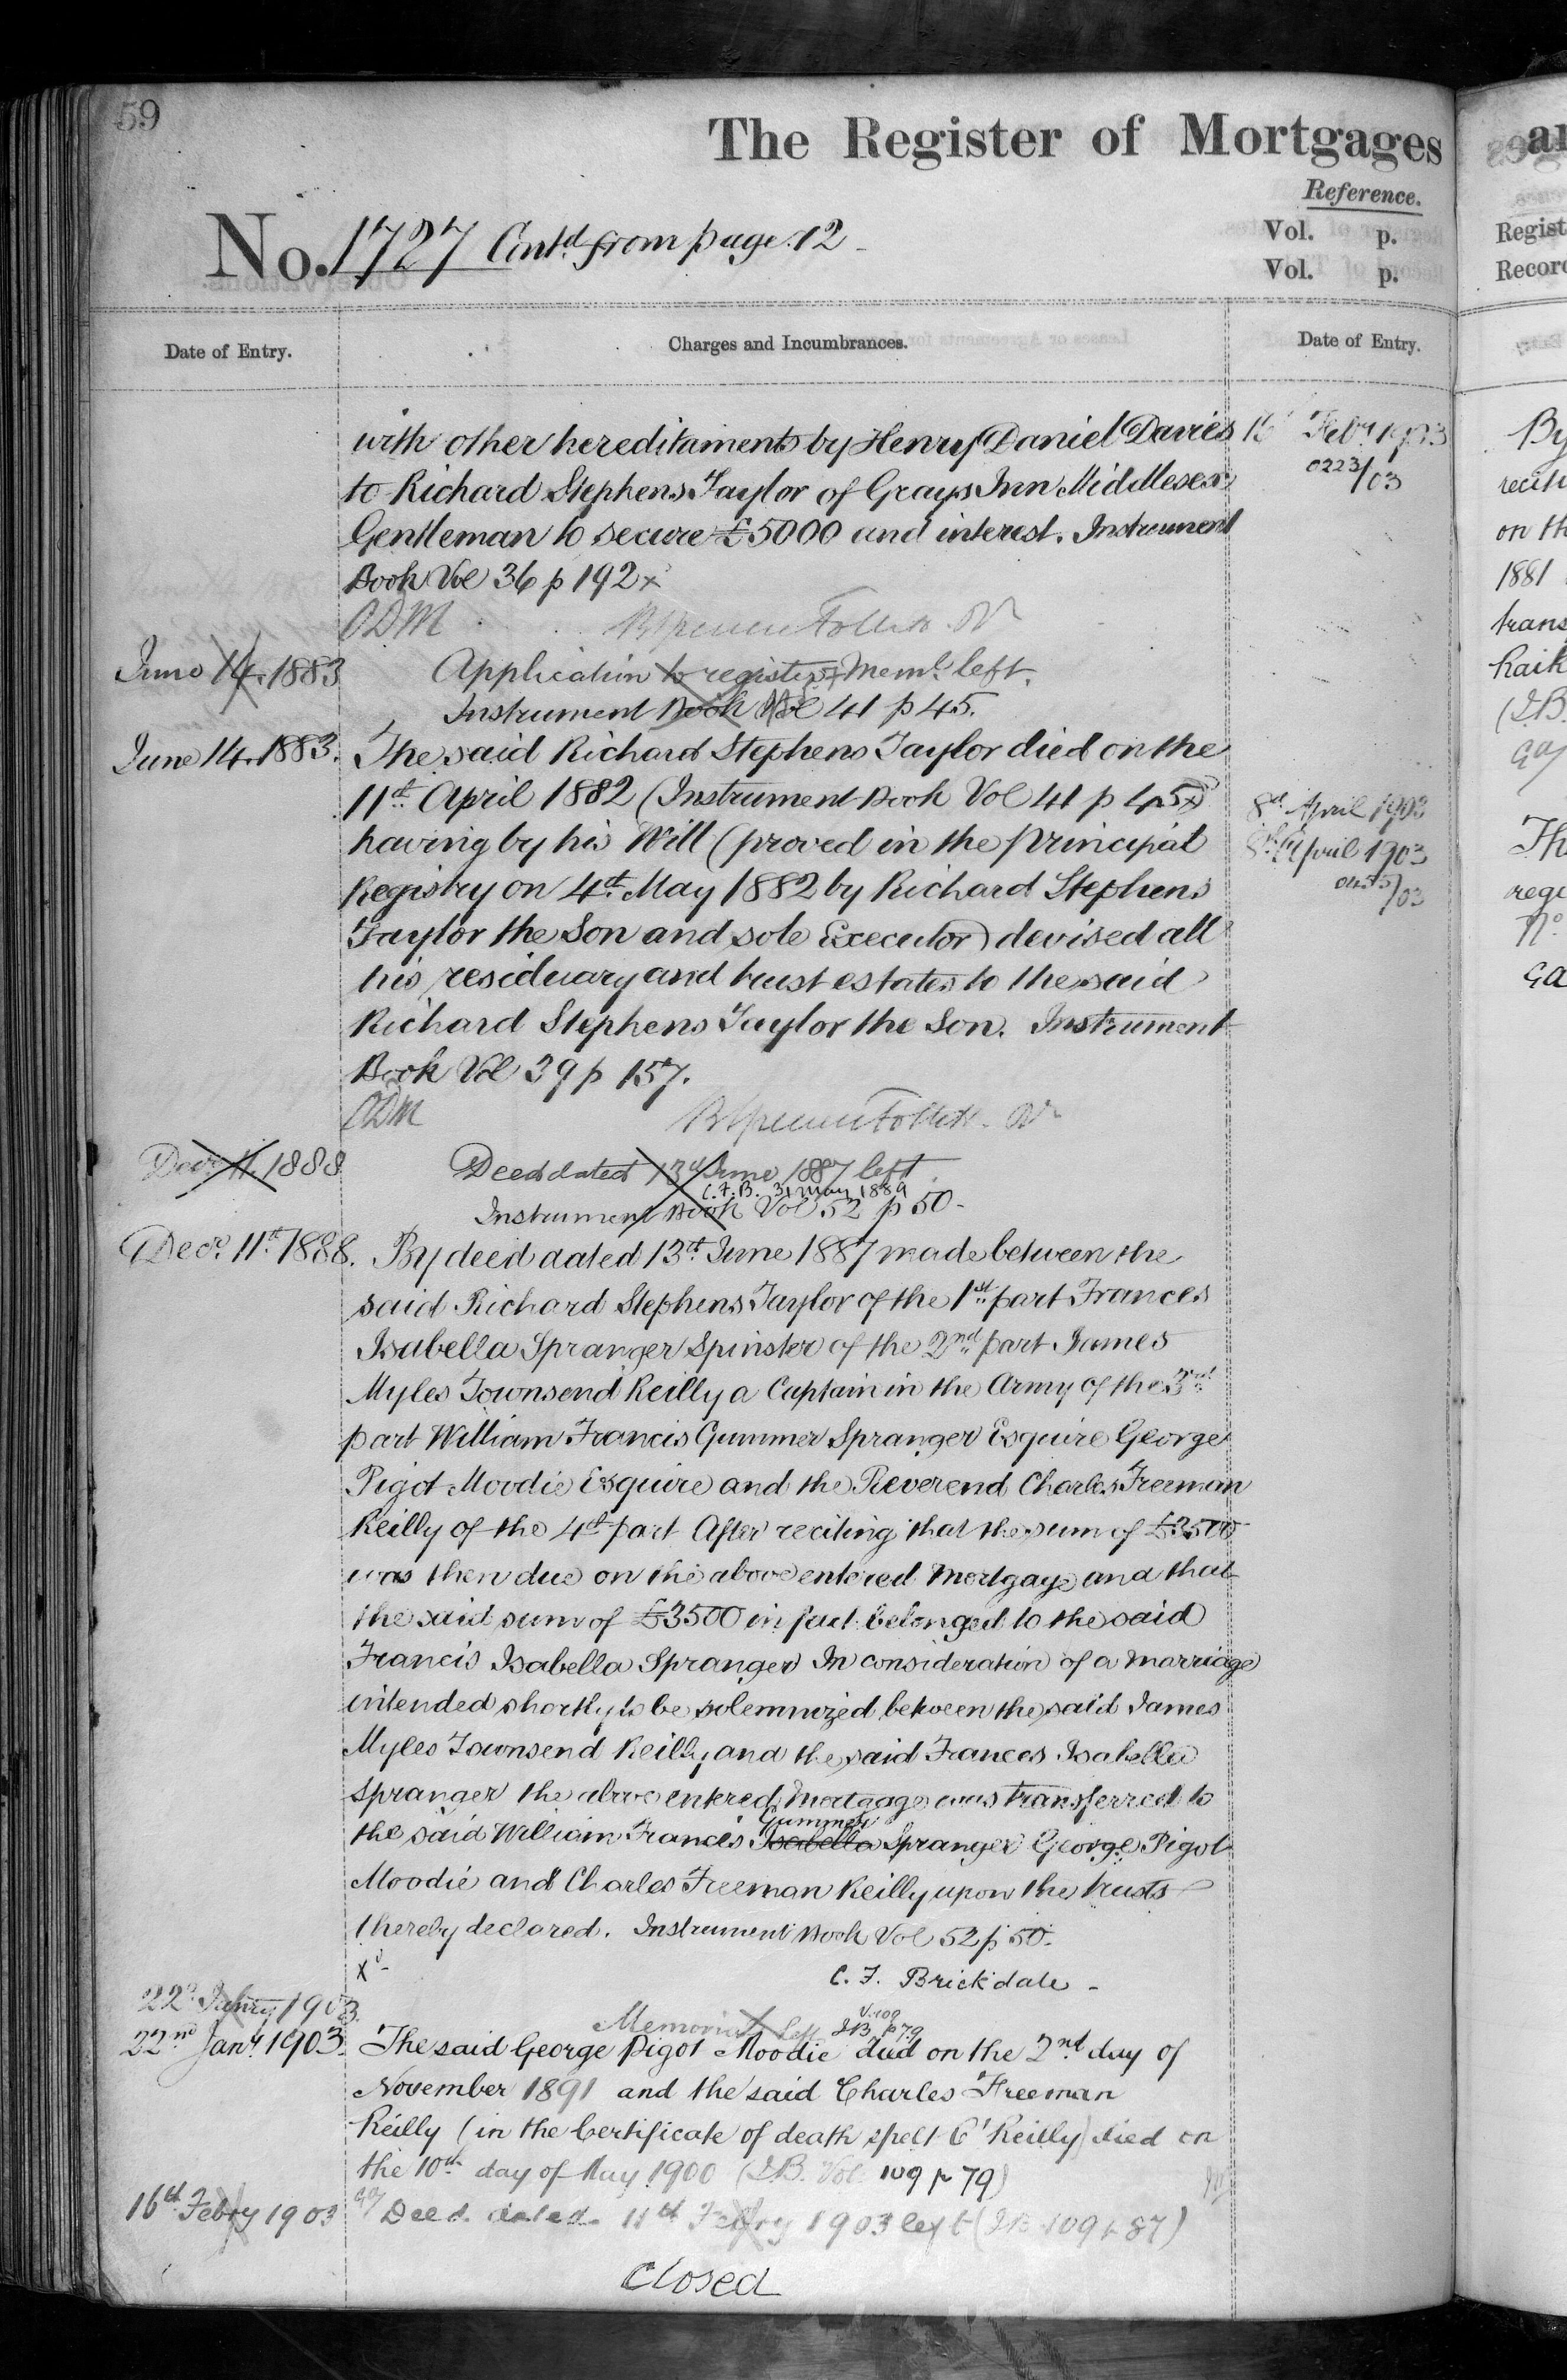 59
The Register of Mortgages
Reference.
Vol. p.
Vol. p.
No. 1727 Contd from page 12
Date of Entry.
Charges and Incumbrances.
Date of Entry.
with other hereditaments by Henry Daniel Davies
to Richard Stephens Taylor of Grays Inn Middlesex
Gentleman to secure £5000 and interest. Instrument
Book Vol 36 p 192 x
ODM
June 14. 1883 Application to register & Meml. left.
Instrument Book Vol 41 p 45.
June 14. 1883. The said Richard Stephens Taylor died on the
11th April 1882 (Instrument Book Vol 41 p 45)
having by his Will (proved in the Principal
Registry on 4th May 1882 by Richard Stephens
Taylor the Son and sole Executor) devised all
his residuary and trust estates to the said
Richard Stephens Taylor the Son. Instrument
Book Vol 39 p 157.
ODM
Decr 11. 1888 Deed dated 13th June 1887 left
C.F.B. 31 May 1889
Instrument Book Vol 52 p 50-
Decr. 11th 1888. By deed dated 13th June 1887 made between the
said Richard Stephens Taylor of the 1st part Frances
Isabella Spranger Spinster of the 2nd part James
Myles Townsend Reilly a Captain in the Army of the 3rd
part William Francis Gummer Spranger Esquire George
Pigot Moodie Esquire and the Reverend Charles Freeman
Reilly of the 4th part After reciting that the sum of £3500
was then due on the above entered Mortgage and that
the said sum of £3500 in fact belonged to the said
Francis Isabella Spranger In consideration of a marriage
intended shortly to be solemnized between the said James
Myles Townsend Reilly and the said Frances Isabella
Spranger the above entered Mortgage was transferred to
Gummer
the said William Francis Isabella Spranger George Pigot
Moodie and Charles Freeman Reilly upon the trusts
thereby declared. Instrument Book Vol 52 p 50.
x
C. F. Brickdale -
22d Janry 1903. Memorial left IB V. 109 p 79
22nd Jany. 1903. The said George Pigot Moodie died on the 2nd day of
November 1891 and the said Charles Freeman
Reilly (in the Certificate of death spelt O'Reilly) died on
the 10th day of May 1900 (I.B. Vol. 109 p 79)
16th Febry 1903 Deed dated 11th Febry 1903 left (IB 109 p 87)
Closed
16 Feby 1903
0223/03
8th April 1903
8th April 1903
0455/03
Regist
Record
By
reciti
on th
1881
trans
haik
(I.B.
Th
rege
No